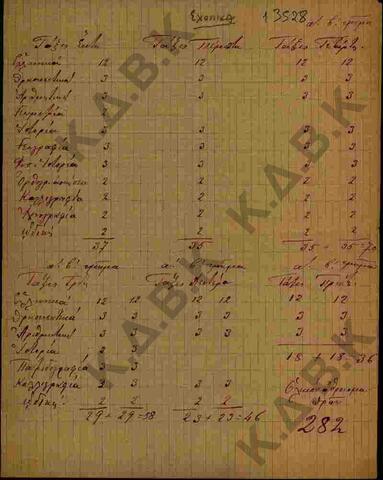 Σχολικά 13528
α. β. τμήμα
Τάξις Έκτη Τάξις Πέμπτη Τάξις Τετάρτη
Ελληνικά 12 12 12 12
Θρησκευτικά 3 3 3 3
Αριθμητική 3 3 3 3
Γεωμετρία 2
Ιστορία 3 3 3 3
Γεωγραφία 3 3 3 3
Φυσ. Ιστορία 3 3 3 3
2 2 2 2
Καλλιγραφία 2 2 2 2
Ιχνογραφία 2 2 2 2
Ωδική 2 2 2 2
37 35 35 + 35 = 70
α. β. τμήμα α. β. τμήμα α. β. τμήμα
Τάξις Τρίτη Τάξις Δευτέρα Τάξις Πρώτη
Ελληνικά 12 12 12 12 12 12
Θρησκευτικά 3 3 3 3 3 3
Αριθμητική 3 3 3 3 3 3
Ιστορία 2 2 18 + 18 = 36
Πατριδογραφία 3 3
Καλλιγραφία 3 3 3 3
Ωδική 2 2 2 2
29 + 29 = 58 23 + 23 = 46
282
Κ.Δ.Β.Κ
Κ.Δ.Β.Κ
Κ.Δ.Β.Κ